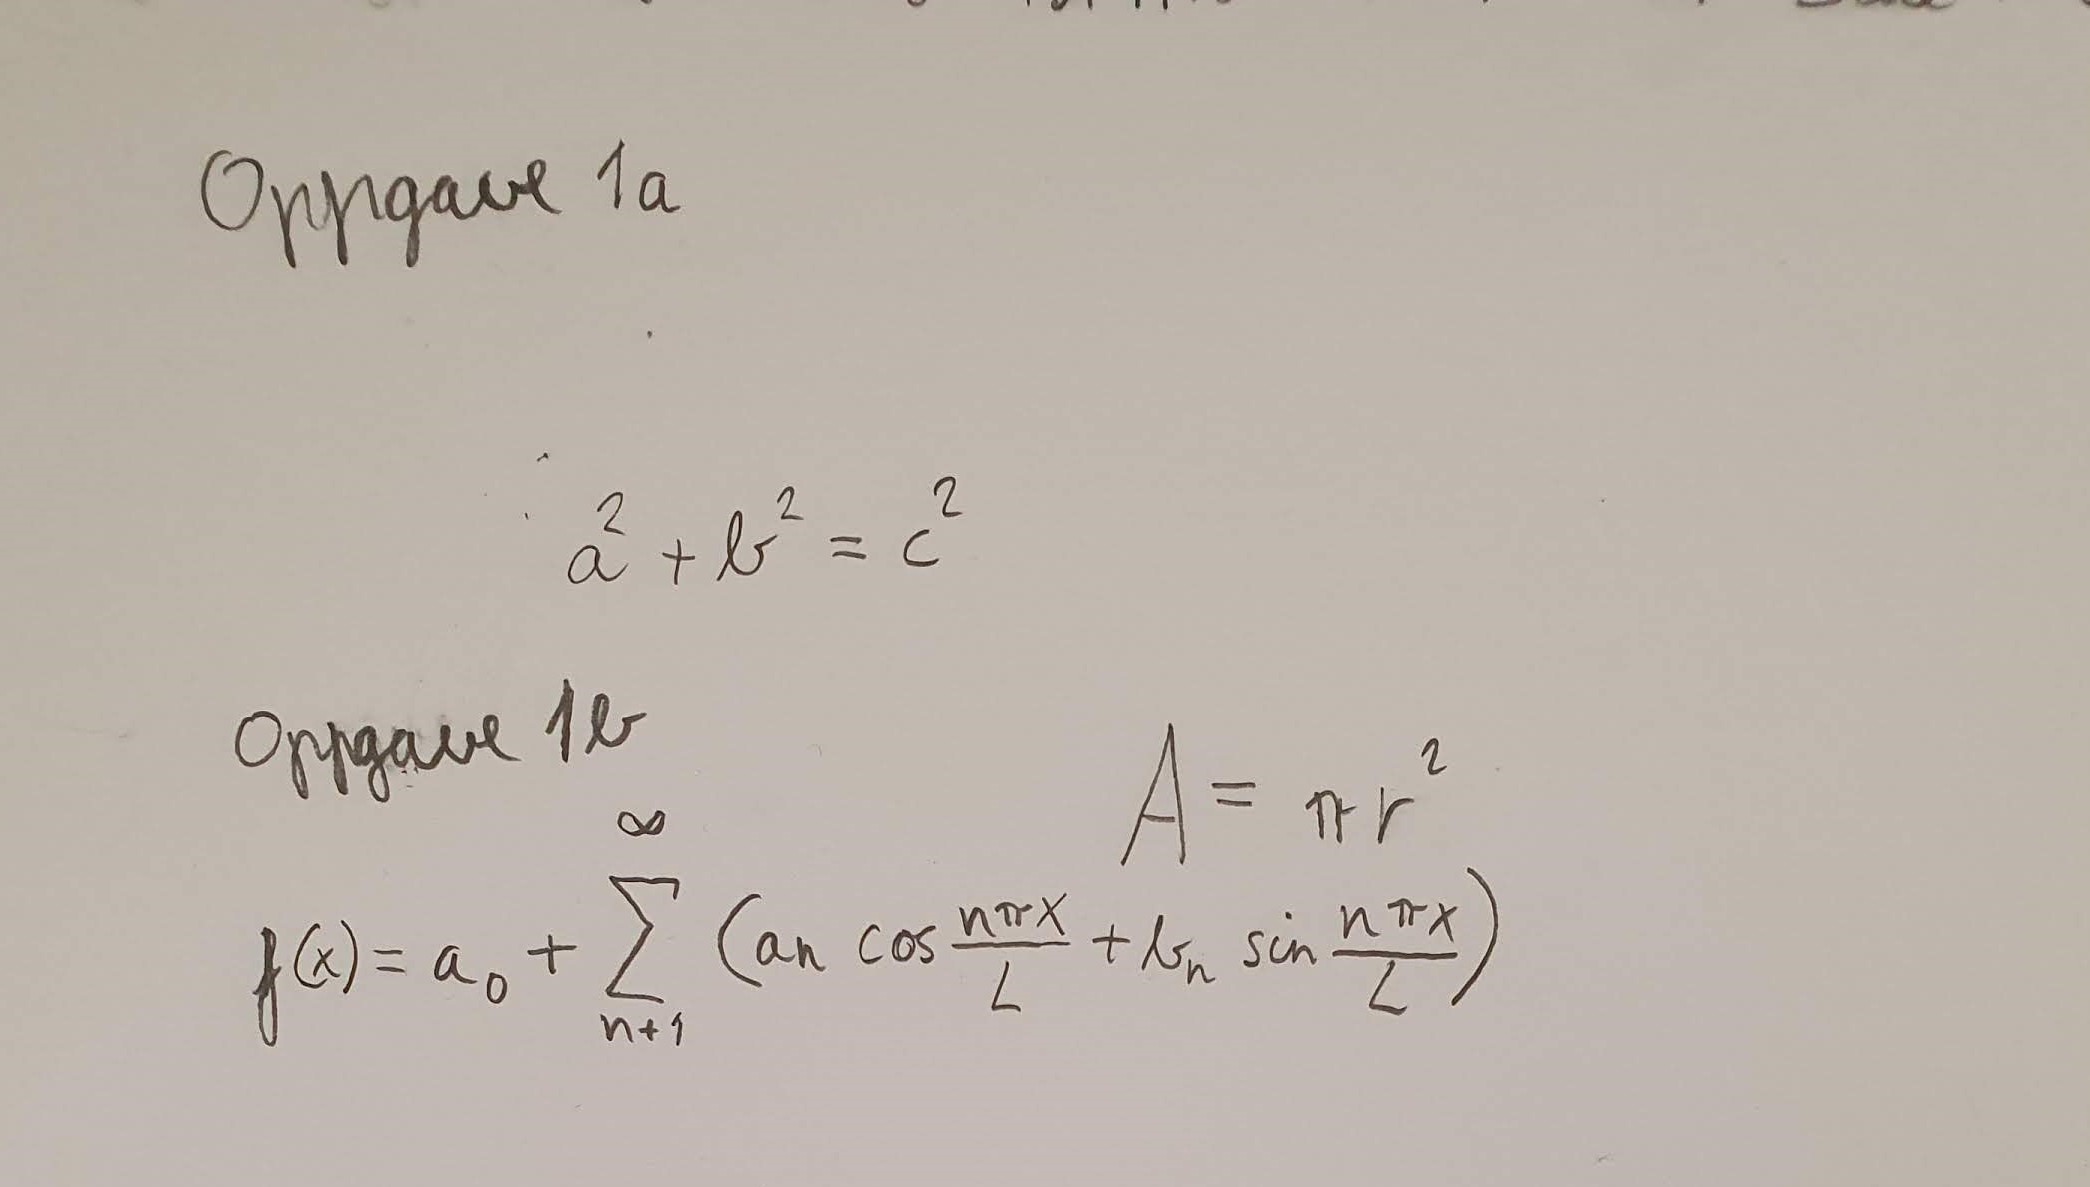 Oppgave 1a
a² + b² = c²
Oppgave 1b
A = πr²
f(x) = a₀ + ∑_{n+1}^{∞} (an cos \frac{nπx}{L} + bₙ sin \frac{nπx}{L})